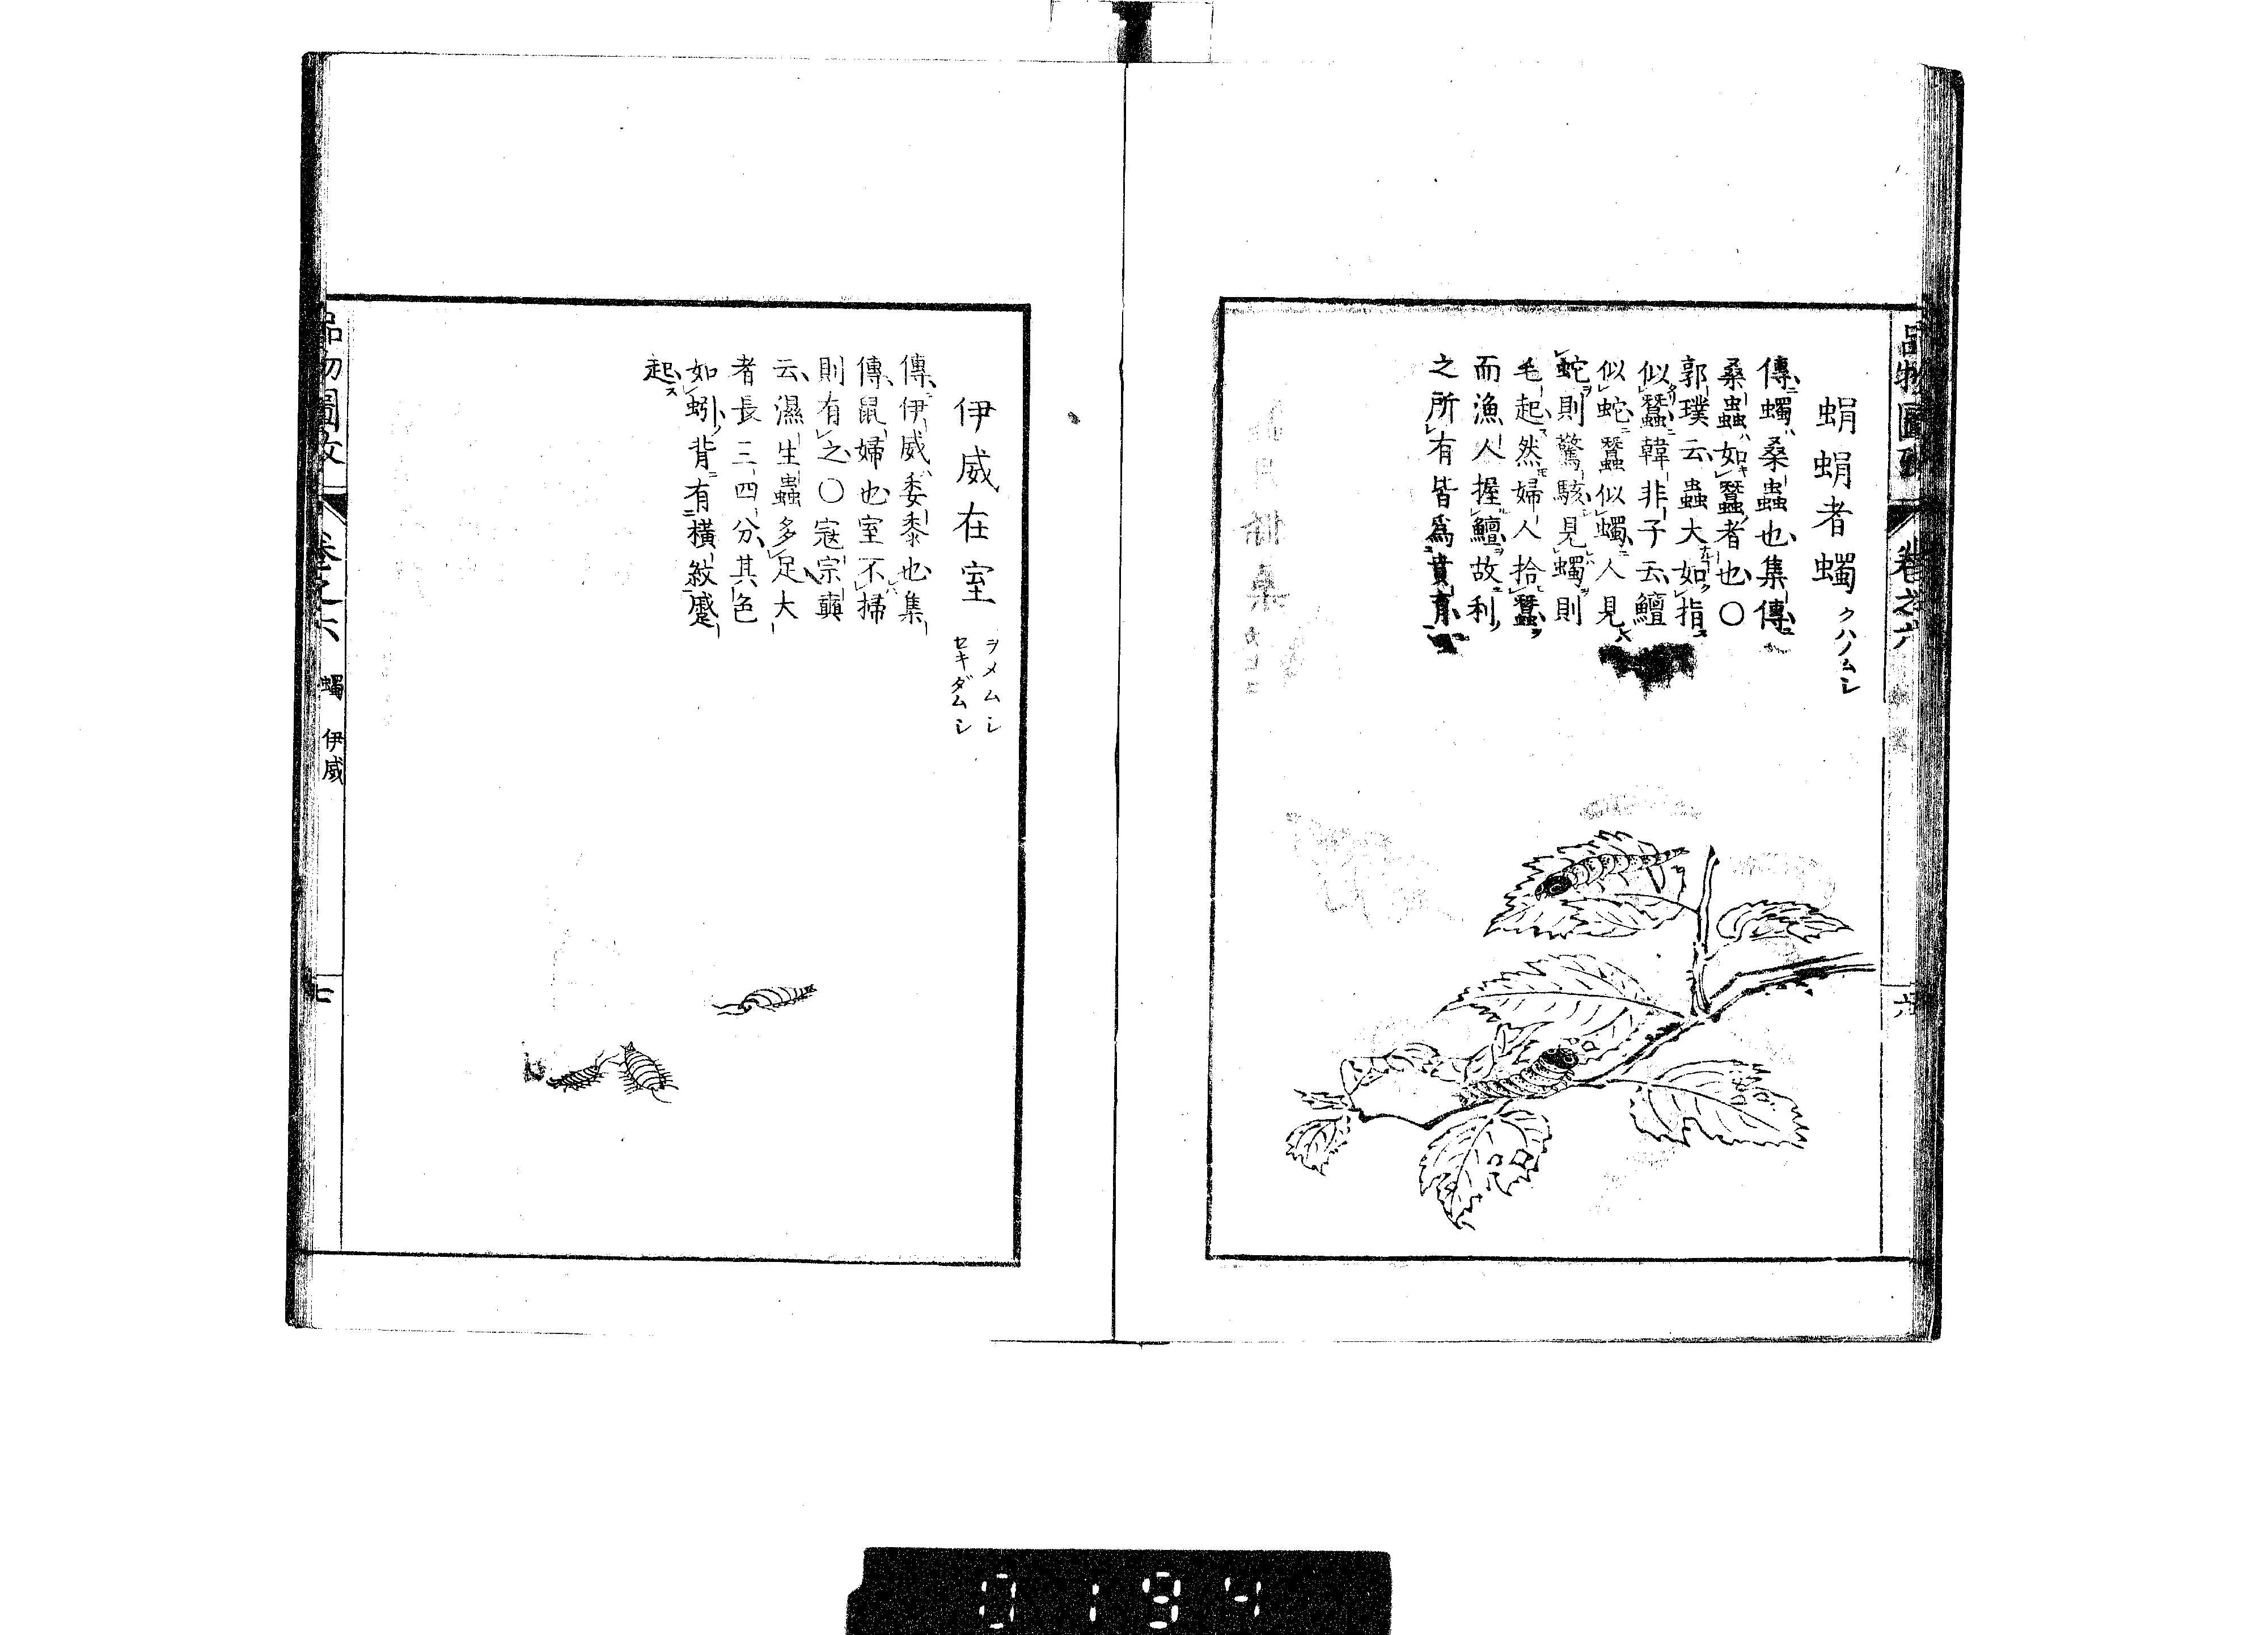 品物圖攷 卷之六
六
蜎蜎者蠋 クハノムシ
傳蠋桑蟲也集傳
桑蟲如蠶者也〇
郭璞云蟲大如指
似蠶韓非子云鱣
似蛇蠶似蠋人見
蛇則驚駭見蠋則
毛起然婦人拾蠶
而漁人握鱣故利
之所有皆爲賁育
伊威在室 ヲメムシ
セキダムシ
傳伊威委黍也集
傳鼠婦也室不掃
則有之〇寇宗奭
云濕生蟲多足大
者長三四分其色
如蚓背有橫紋蹙
起
品物圖攷 卷之六 蠋 伊威
七
0194